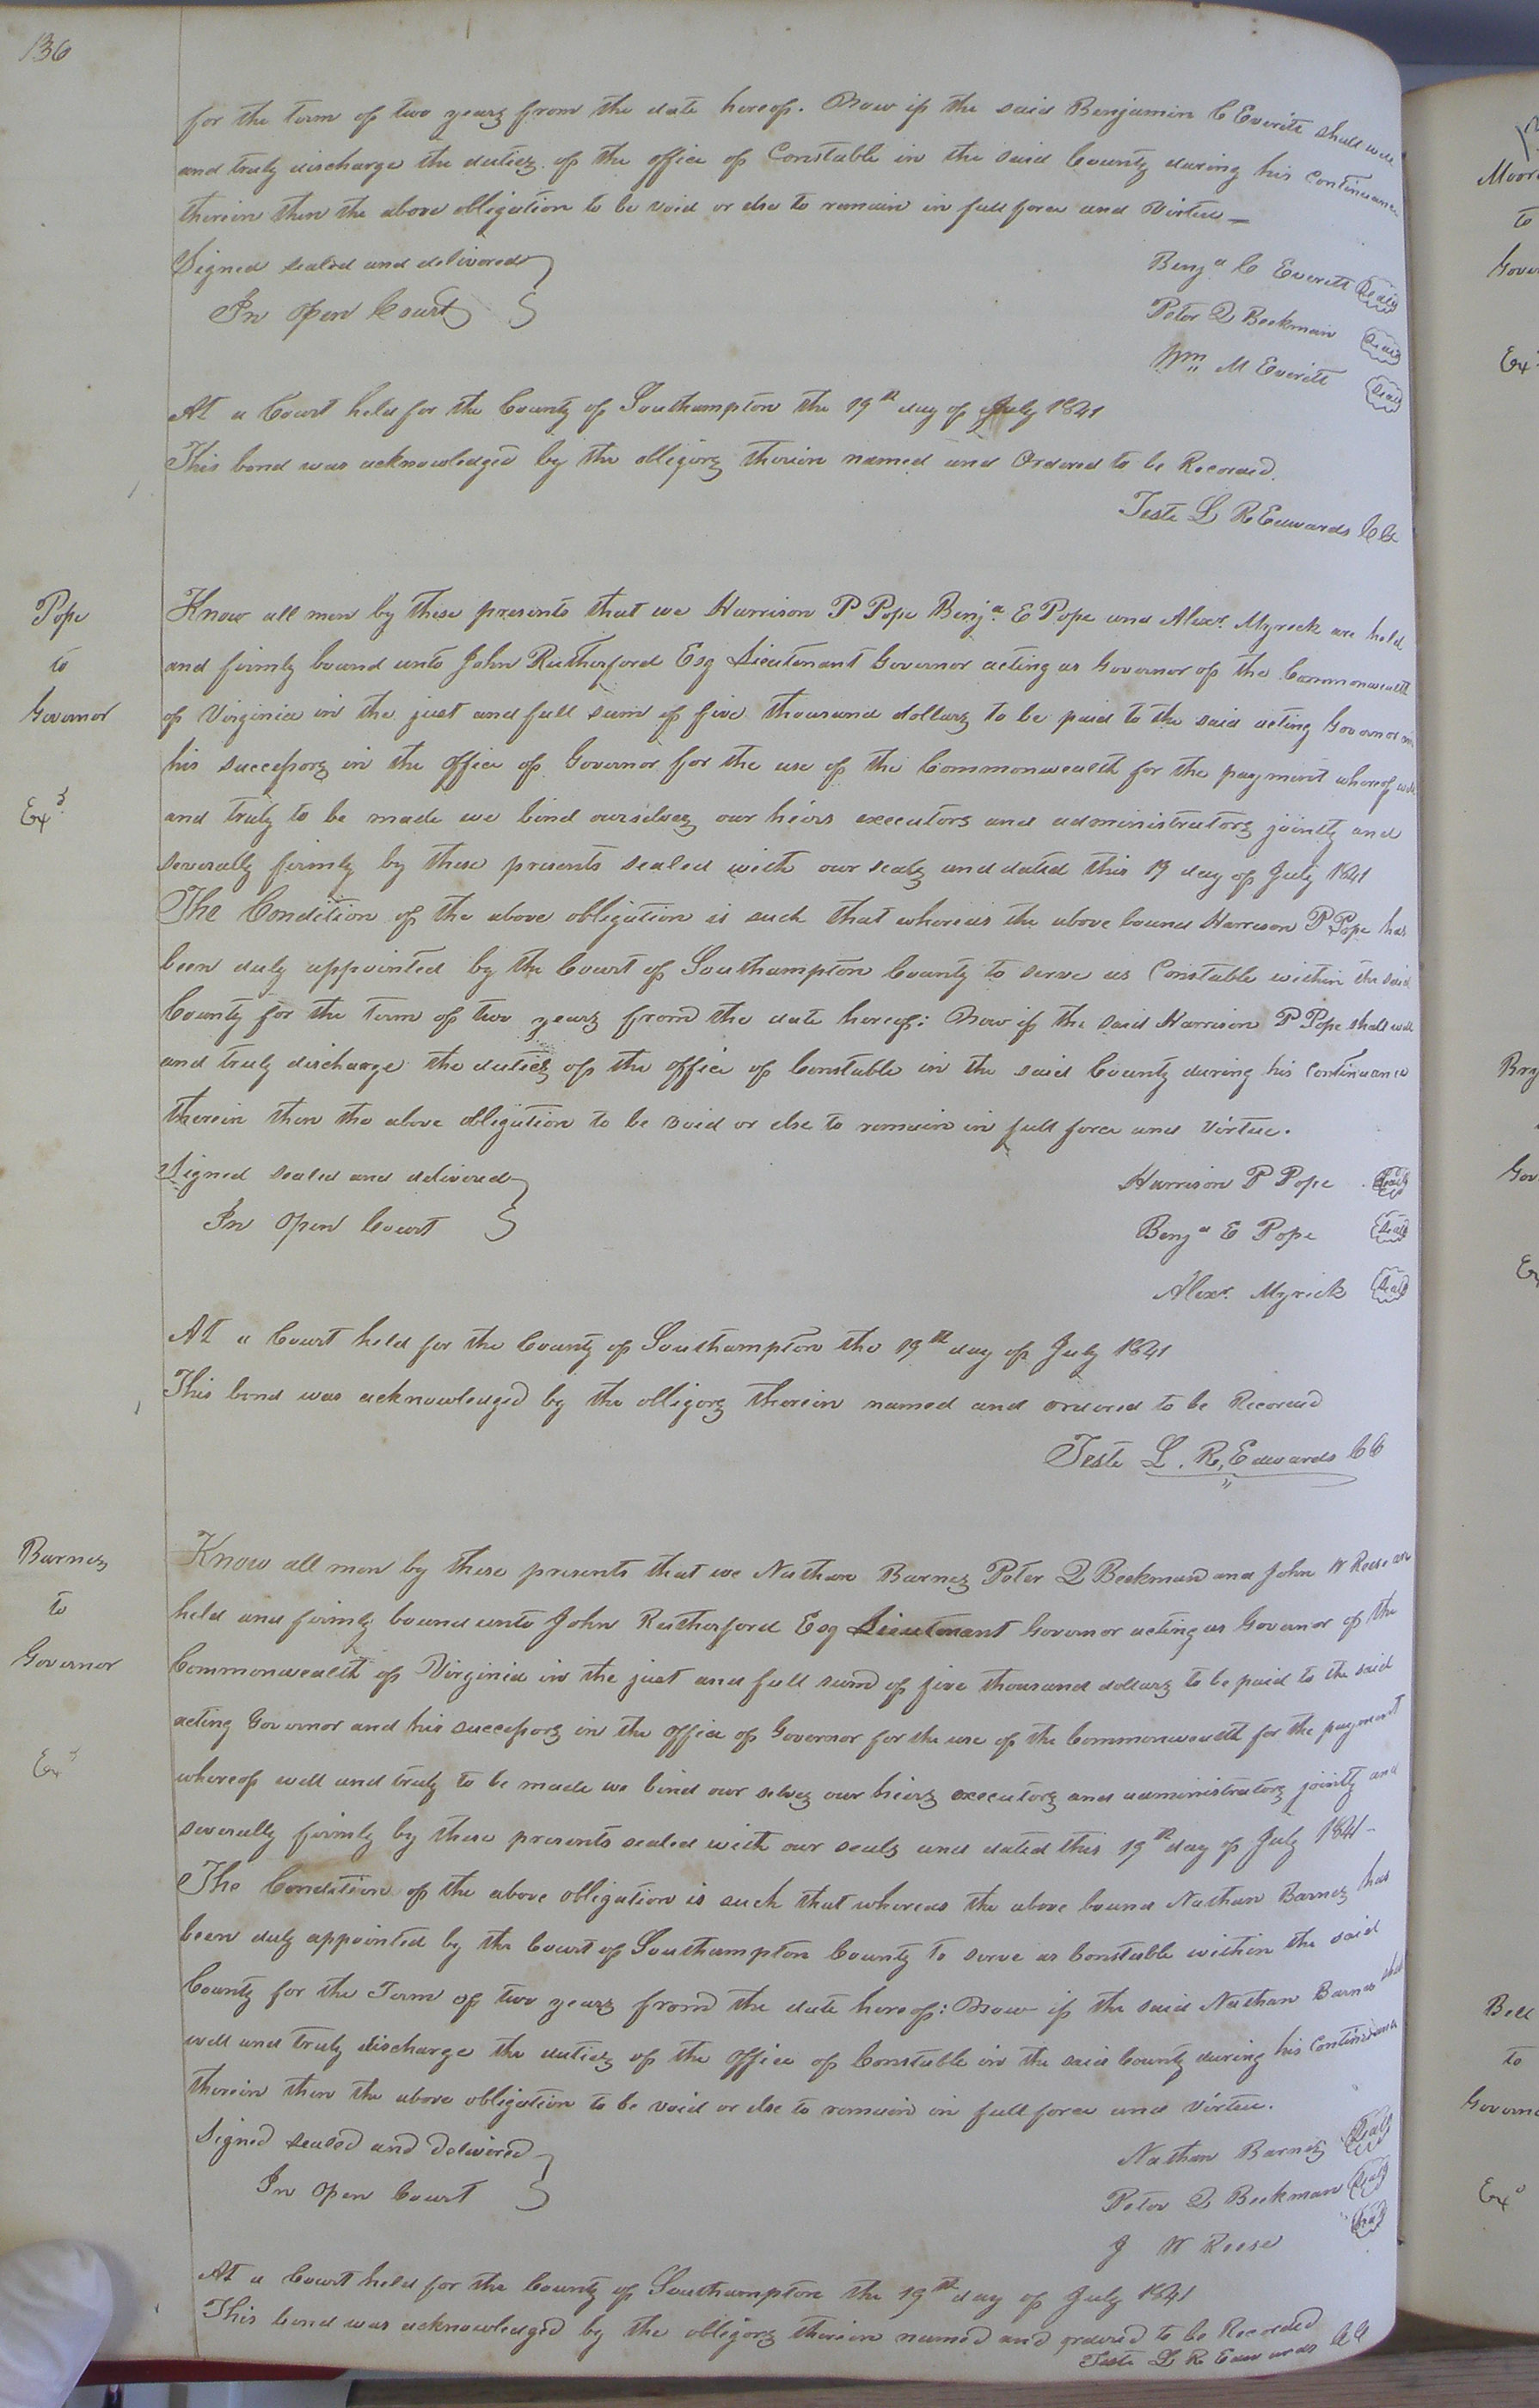 136
for the term of two years from the date hereof. Now if the said Benjamin C Everitt shall well
and truly discharge the duties of the office of Constable in the said County during his continuance
therein then the above obligation to be void or else to remain in full force and Virtue —
Signed sealed and delivered
In open Court
Benja C Everitt Seal
Peter D Beekman Seal
Wm M Everitt Seal
At a Court held for the County of Southampton the 19th day of July 1841
This bond was acknowledged by the obligors therein named and Ordered to be Recorded.
Teste L R Edwards CC
Pope
to
Governor
Exd
Know all men by these presents that we Harrison P Pope Benja. E Pope and Alexr. Myrick are held
and firmly bound unto John Rutherford Esq Lieutenant Governor acting as Governor of the Commonwealth
of Virginia in the just and full sum of five thousand dollars to be paid to the said acting Governor and
his successors in the office of Governor for the use of the Commonwealth for the payment whereof well
and truly to be made we bind ourselves our heirs executors and administrators jointly and
severally firmly by these presents sealed with our seals and dated this 19 day of July 1841
The Condition of the above obligation is such that whereas the above bound Harrison P Pope has
been duly appointed by the Court of Southampton County to serve as Constable within the said
County for the term of two years from the date hereof: Now if the said Harrison P Pope shall well
and truly discharge the duties of the office of Constable in the said County during his continuance
therein then the above obligation to be void or else to remain in full force and Virtue.
Signed sealed and delivered
In open Court
Harrison P Pope Seal
Benja E Pope Seal
Alexr. Myrick Seal
At a Court held for the County of Southampton the 19th day of July 1841
This bond was acknowledged by the obligors therein named and ordered to be Recorded
Teste L. R. Edwards CC
Barnes
to
Governor
Exd
Know all men by these presents that we Nathan Barnes Peter D Beekman and John W Reese are
held and firmly bound unto John Rutherford Esq Lieutenant Governor acting as Governor of the
Commonwealth of Virginia in the just and full sum of five thousand dollars to be paid to the said
acting Governor and his successors in the office of Governor for the use of the Commonwealth for the payment
whereof well and truly to be made we bind our selves our heirs executors and administrators jointly and
severally firmly by these presents sealed with our seals and dated this 19th day of July 1841 -
The Condition of the above obligation is such that whereas the above bound Nathan Barnes has
been duly appointed by the Court of Southampton County to serve as Constable within the said
County for the Term of two years from the date hereof: Now if the said Nathan Barnes shall
well and truly discharge the duties of the office of Constable in the said County during his continuance
therein then the above obligation to be void or else to remain in full force and Virtue.
Signed sealed and delivered
In open Court
Nathan Barnes Seal
Peter D Beekman Seal
J W Reese Seal
At a Court held for the County of Southampton the 19th day of July 1841
This bond was acknowledged by the obligors therein named and ordered to be Recorded
Teste L R Edwards CC
to
Bell
to